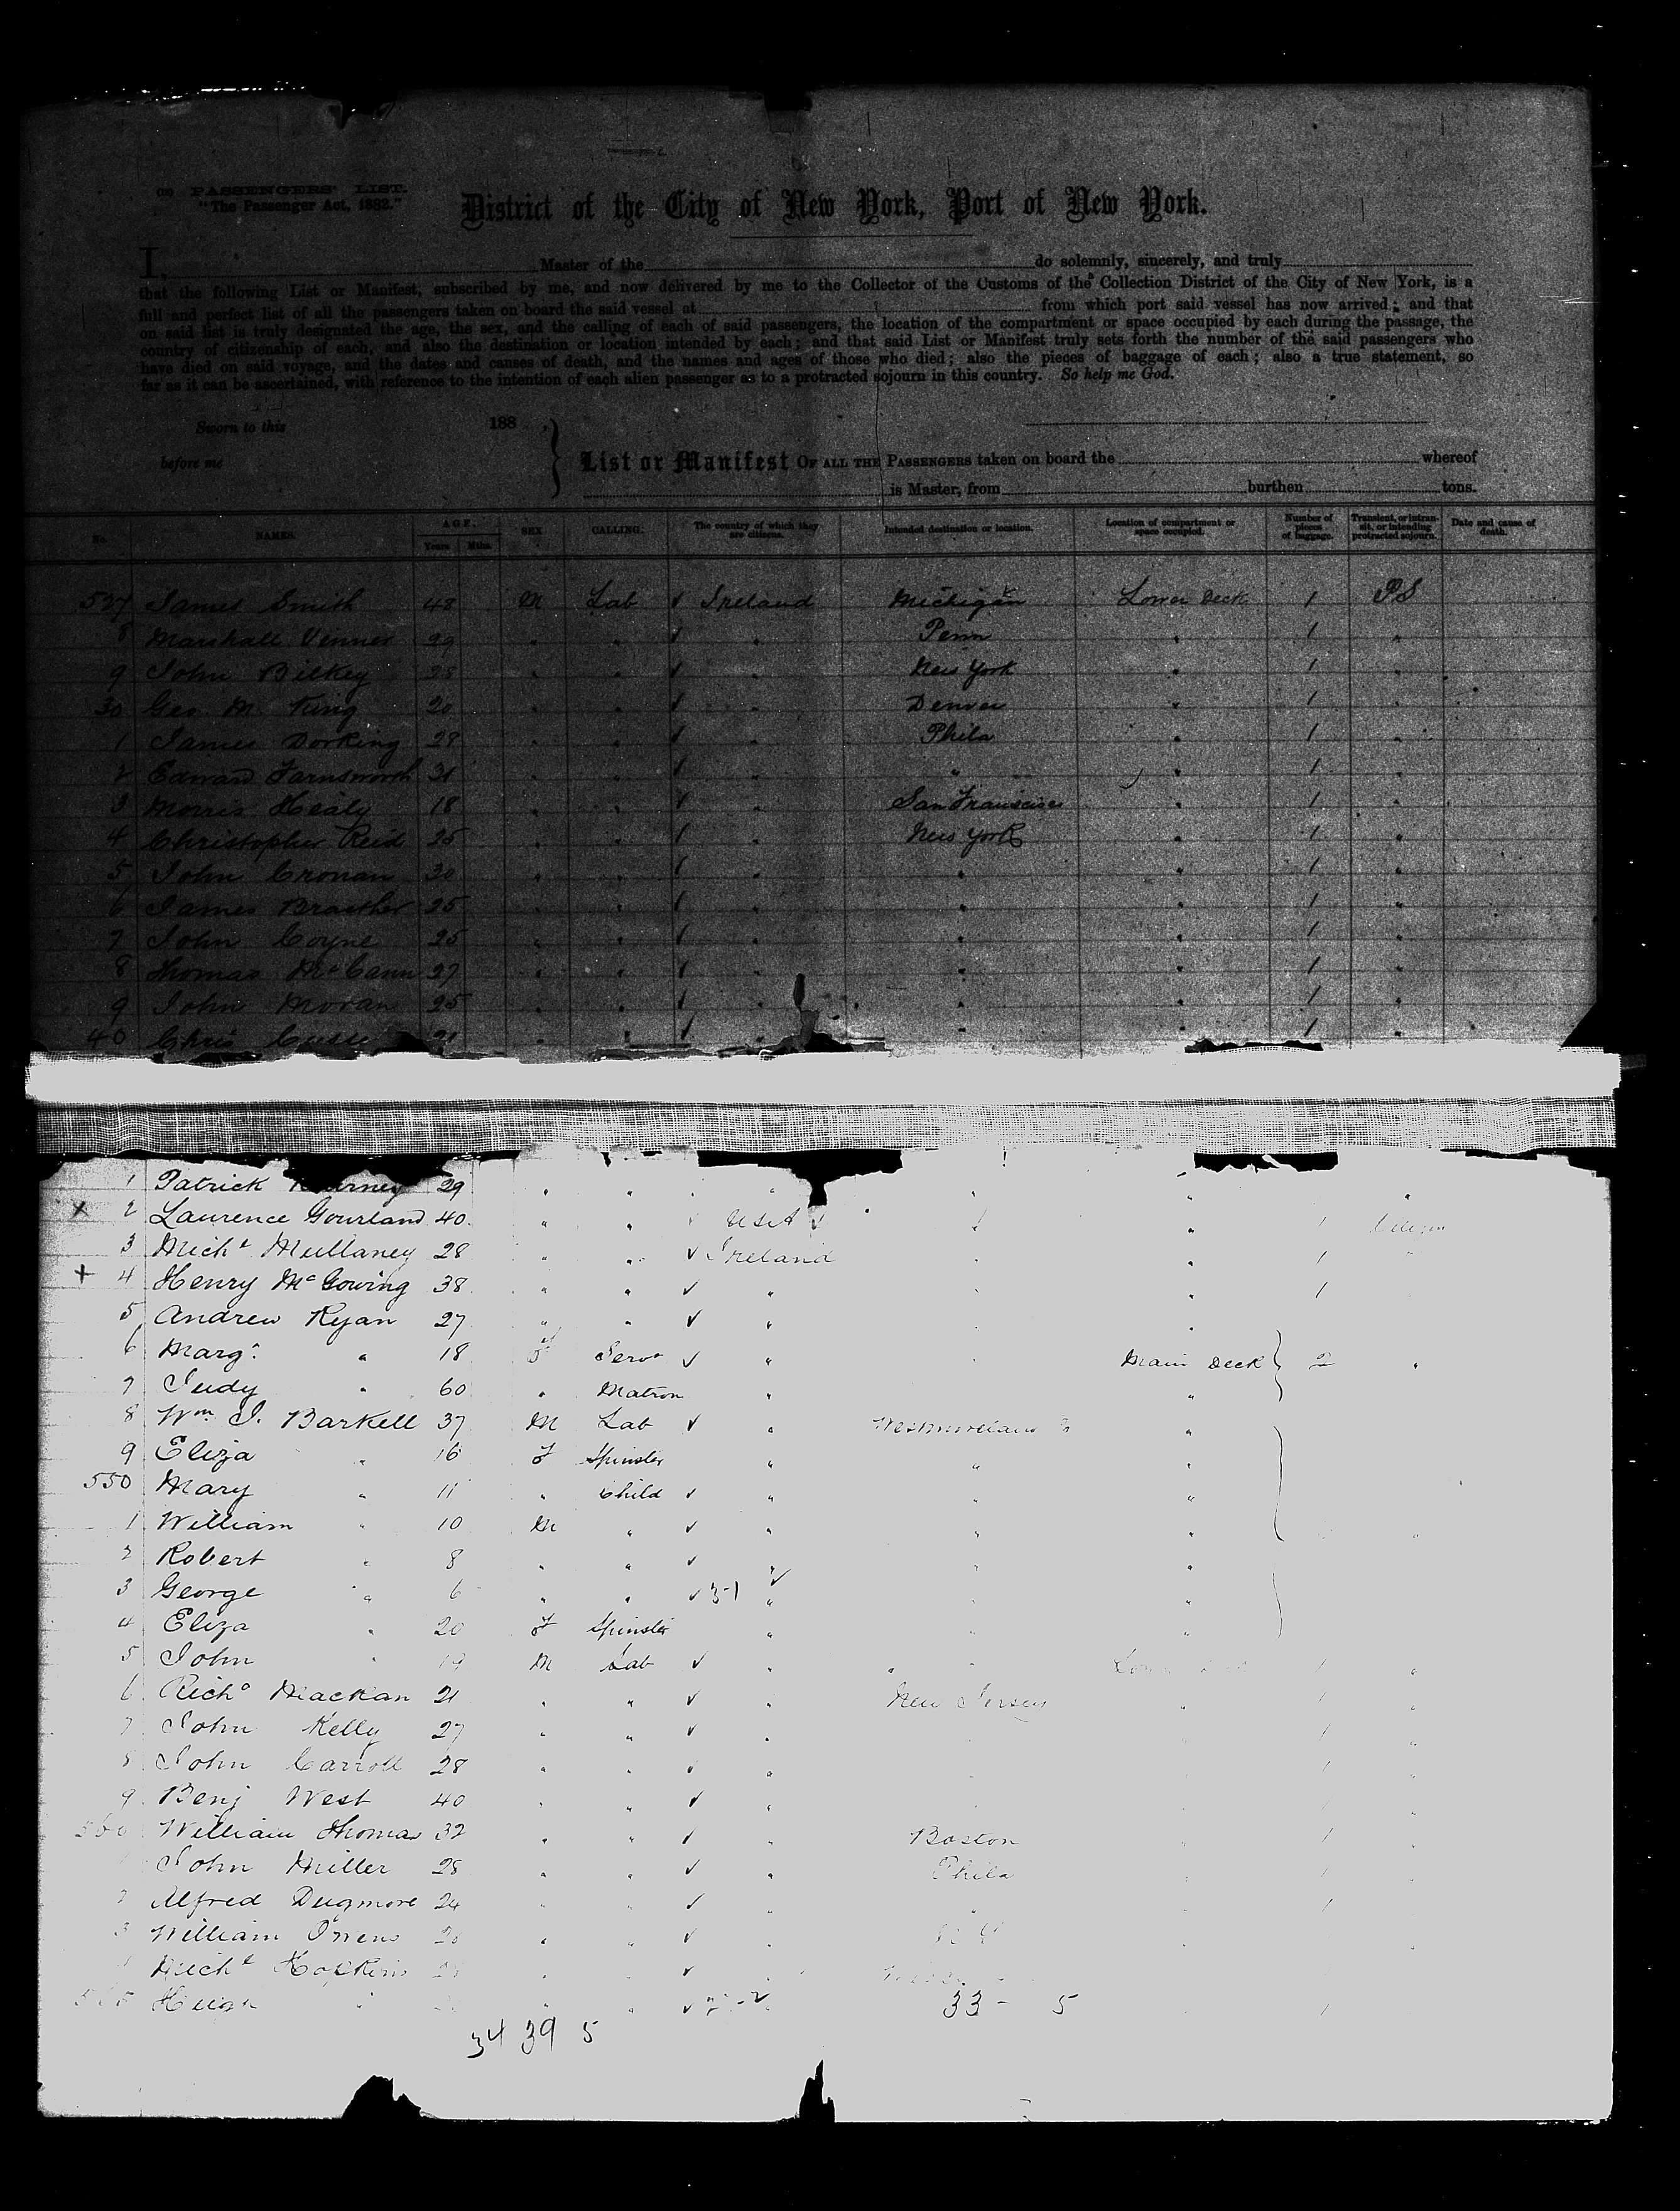 (18) PASSENGERS' LIST.
"The Passenger Act, 1882."
District of the City of New York, Port of New York.
I, Master of the do solemnly, sincerely, and truly
that the following List or Manifest, subscribed by me, and now delivered by me to the Collector of the Customs of the Collection District of the City of New York, is a
full and perfect list of all the passengers taken on board the said vessel at from which port said vessel has now arrived; and that
on said list is truly designated the age, the sex, and the calling of each of said passengers, the location of the compartment or space occupied by each during the passage, the
country of citizenship of each, and also the destination or location intended by each; and that said List or Manifest truly sets forth the number of the said passengers who
have died on said voyage, and the dates and causes of death, and the names and ages of those who died; also the pieces of baggage of each; also a true statement, so
far as it can be ascertained, with reference to the intention of each alien passenger as to a protracted sojourn in this country. So help me God.
Sworn to this 188
before me
List or Manifest OF ALL THE PASSENGERS taken on board the whereof
is Master, from burthen tons.
No. NAMES. AGE. Years Mths. SEX CALLING. The country of which they are citizens. Intended destination or location. Location of compartment or space occupied. Number of pieces of baggage. Transient, or in transit, or intending protracted sojourn. Date and cause of death.
527 James Smith 48 M Lab ✓ Ireland Michigan Lower Deck 1 PS
8 Marshall Venner 29 " " ✓ " Penn " 1 "
9 John Bilkey 28 " " ✓ " New York " 1 "
30 Geo M. King 20 " " ✓ " Denver " 1 "
1 James Dorking 28 " " ✓ " Phila " 1 "
2 Edward Farnsworth 31 " " ✓ " " " 1 "
3 Morris Healy 18 " " ✓ " San Francisco " 1 "
4 Christopher Reid 25 " " ✓ " New York " 1 "
5 John Cronan 30 " " ✓ " " " 1 "
6 James 25 " " ✓ " " " 1 "
7 John Coyne 25 " " ✓ " " " 1 "
8 Thomas McCann 27 " " ✓ " " " 1 "
9 John Moran 25 " " ✓ " " " 1 "
40 Chris 21 " " ✓ " " " 1 "
1 Patrick 29 " " " " " "
x 2 Laurence Gourland 40 " " USA " 1
3 Michl Mullaney 28 " " ✓ Ireland " " 1 "
+ 4 Henry McGowing 38 " " ✓ " " " 1
5 Andrew Ryan 27 " " ✓ " "
6 Margt " 18 F Servt ✓ " " Main Deck 2 "
7 Judy " 60 " Matron " "
8 Wm J. Barkell 37 M Lab ✓ " Westmoreland Co "
9 Eliza " 16 F Spinster " " "
550 Mary " 11 " Child ✓ " " "
1 William " 10 M " ✓ " " " "
2 Robert " 8 " " ✓ " " "
3 George " 6 " " ✓ 3-1 " "
4 Eliza " 20 F Spinster " " "
5 John " 19 M Lab ✓ " " 1 "
6 Richd Mackan 21 " " ✓ " New Jersey " 1 "
7 John Kelly 27 " " ✓ " " 1 "
8 John Carroll 28 " " ✓ " " 1 "
9 Benj West 40 " " ✓ " 1 "
560 William Thomas 32 " " ✓ " Boston " 1 "
John Miller 28 " " ✓ " Phila " 1 "
2 Alfred Dugmore 24 " " ✓ " " " 1 "
3 William Owens 20 " " ✓ "
Michl Hopkins " ✓ "
565 Hugh " " " ✓ 33 - 5 1
34 39 5